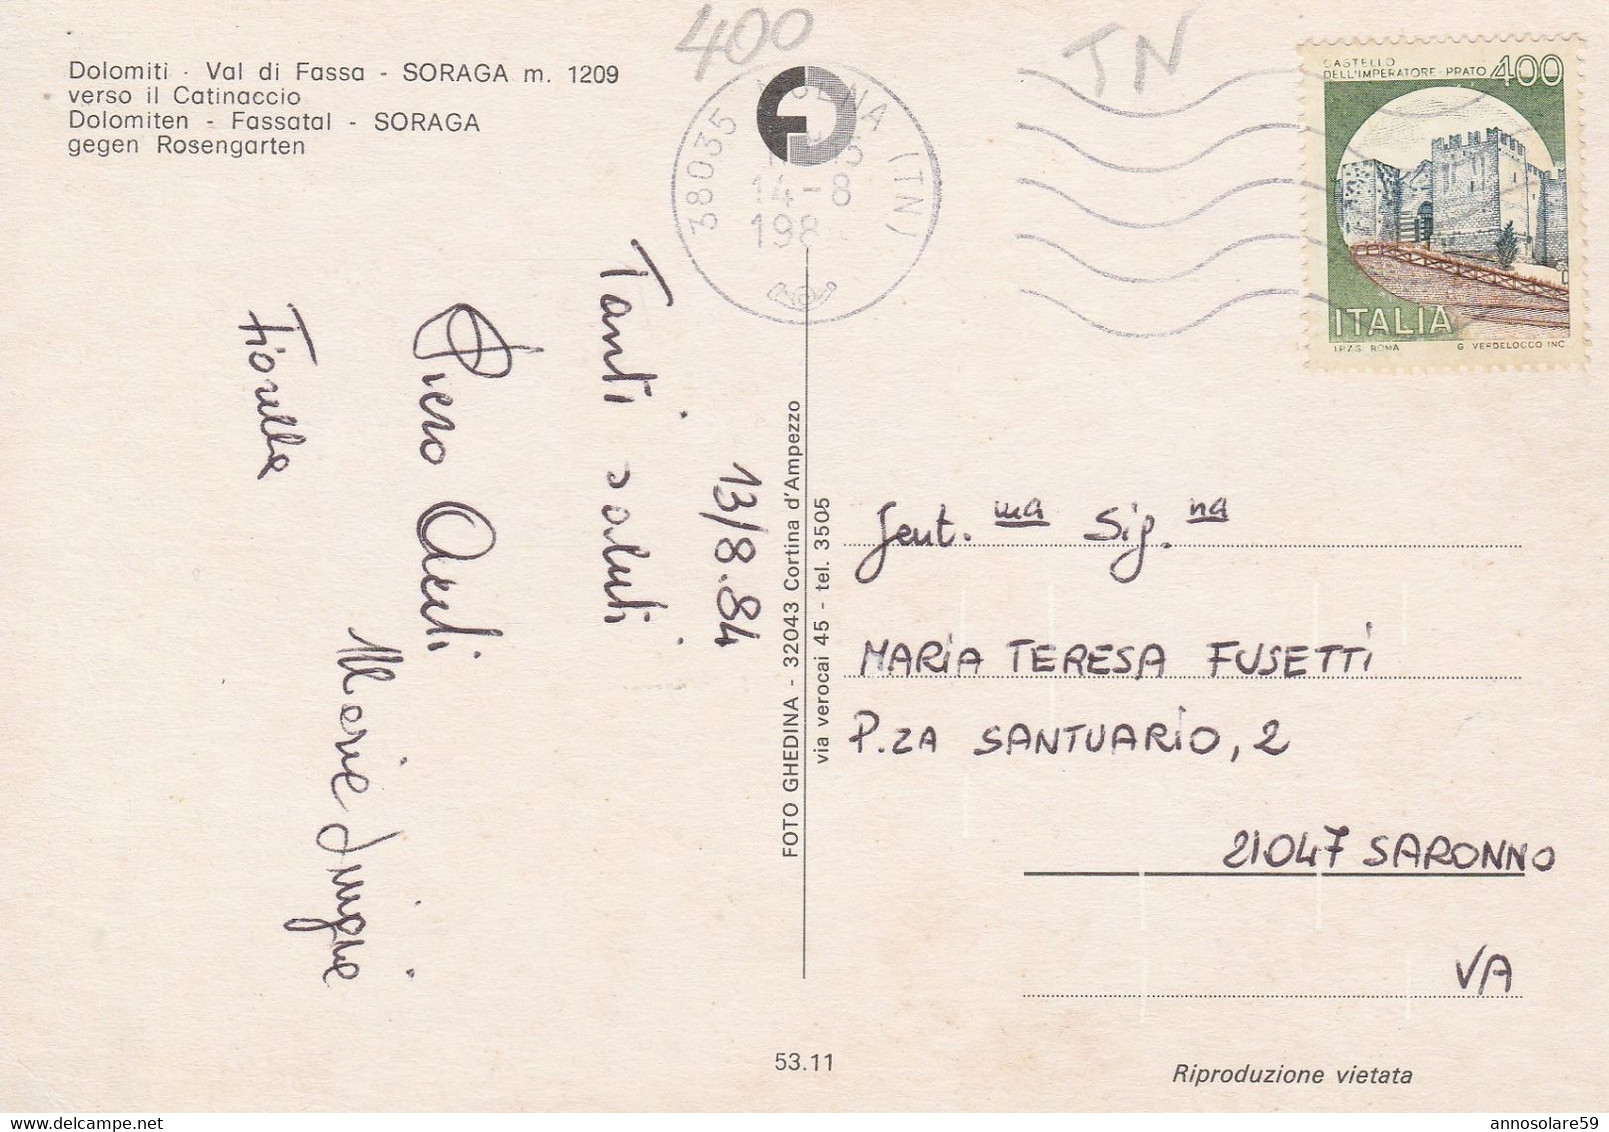 400
TN
Dolomiti - Val di Fassa - SORAGA m. 1209
verso il Catinaccio
Dolomiten - Fassatal - SORAGA
gegen Rosengarten
38035 (TN)
14-8
198
CASTELLO
DELL'IMPERATORE-PRATO 400
ITALIA
I.P.Z.S. ROMA G. VERDELOCCO INC
13/8.84
Tanti saluti
Piero
Fiorella
FOTO GHEDINA - 32043 Cortina d'Ampezzo
via verocai 45 - tel. 3505
Gent.ma Sig.na
MARIA TERESA FUSETTI
P.ZA SANTUARIO, 2
21047 SARONNO
VA
53.11
Riproduzione vietata
annosolare59